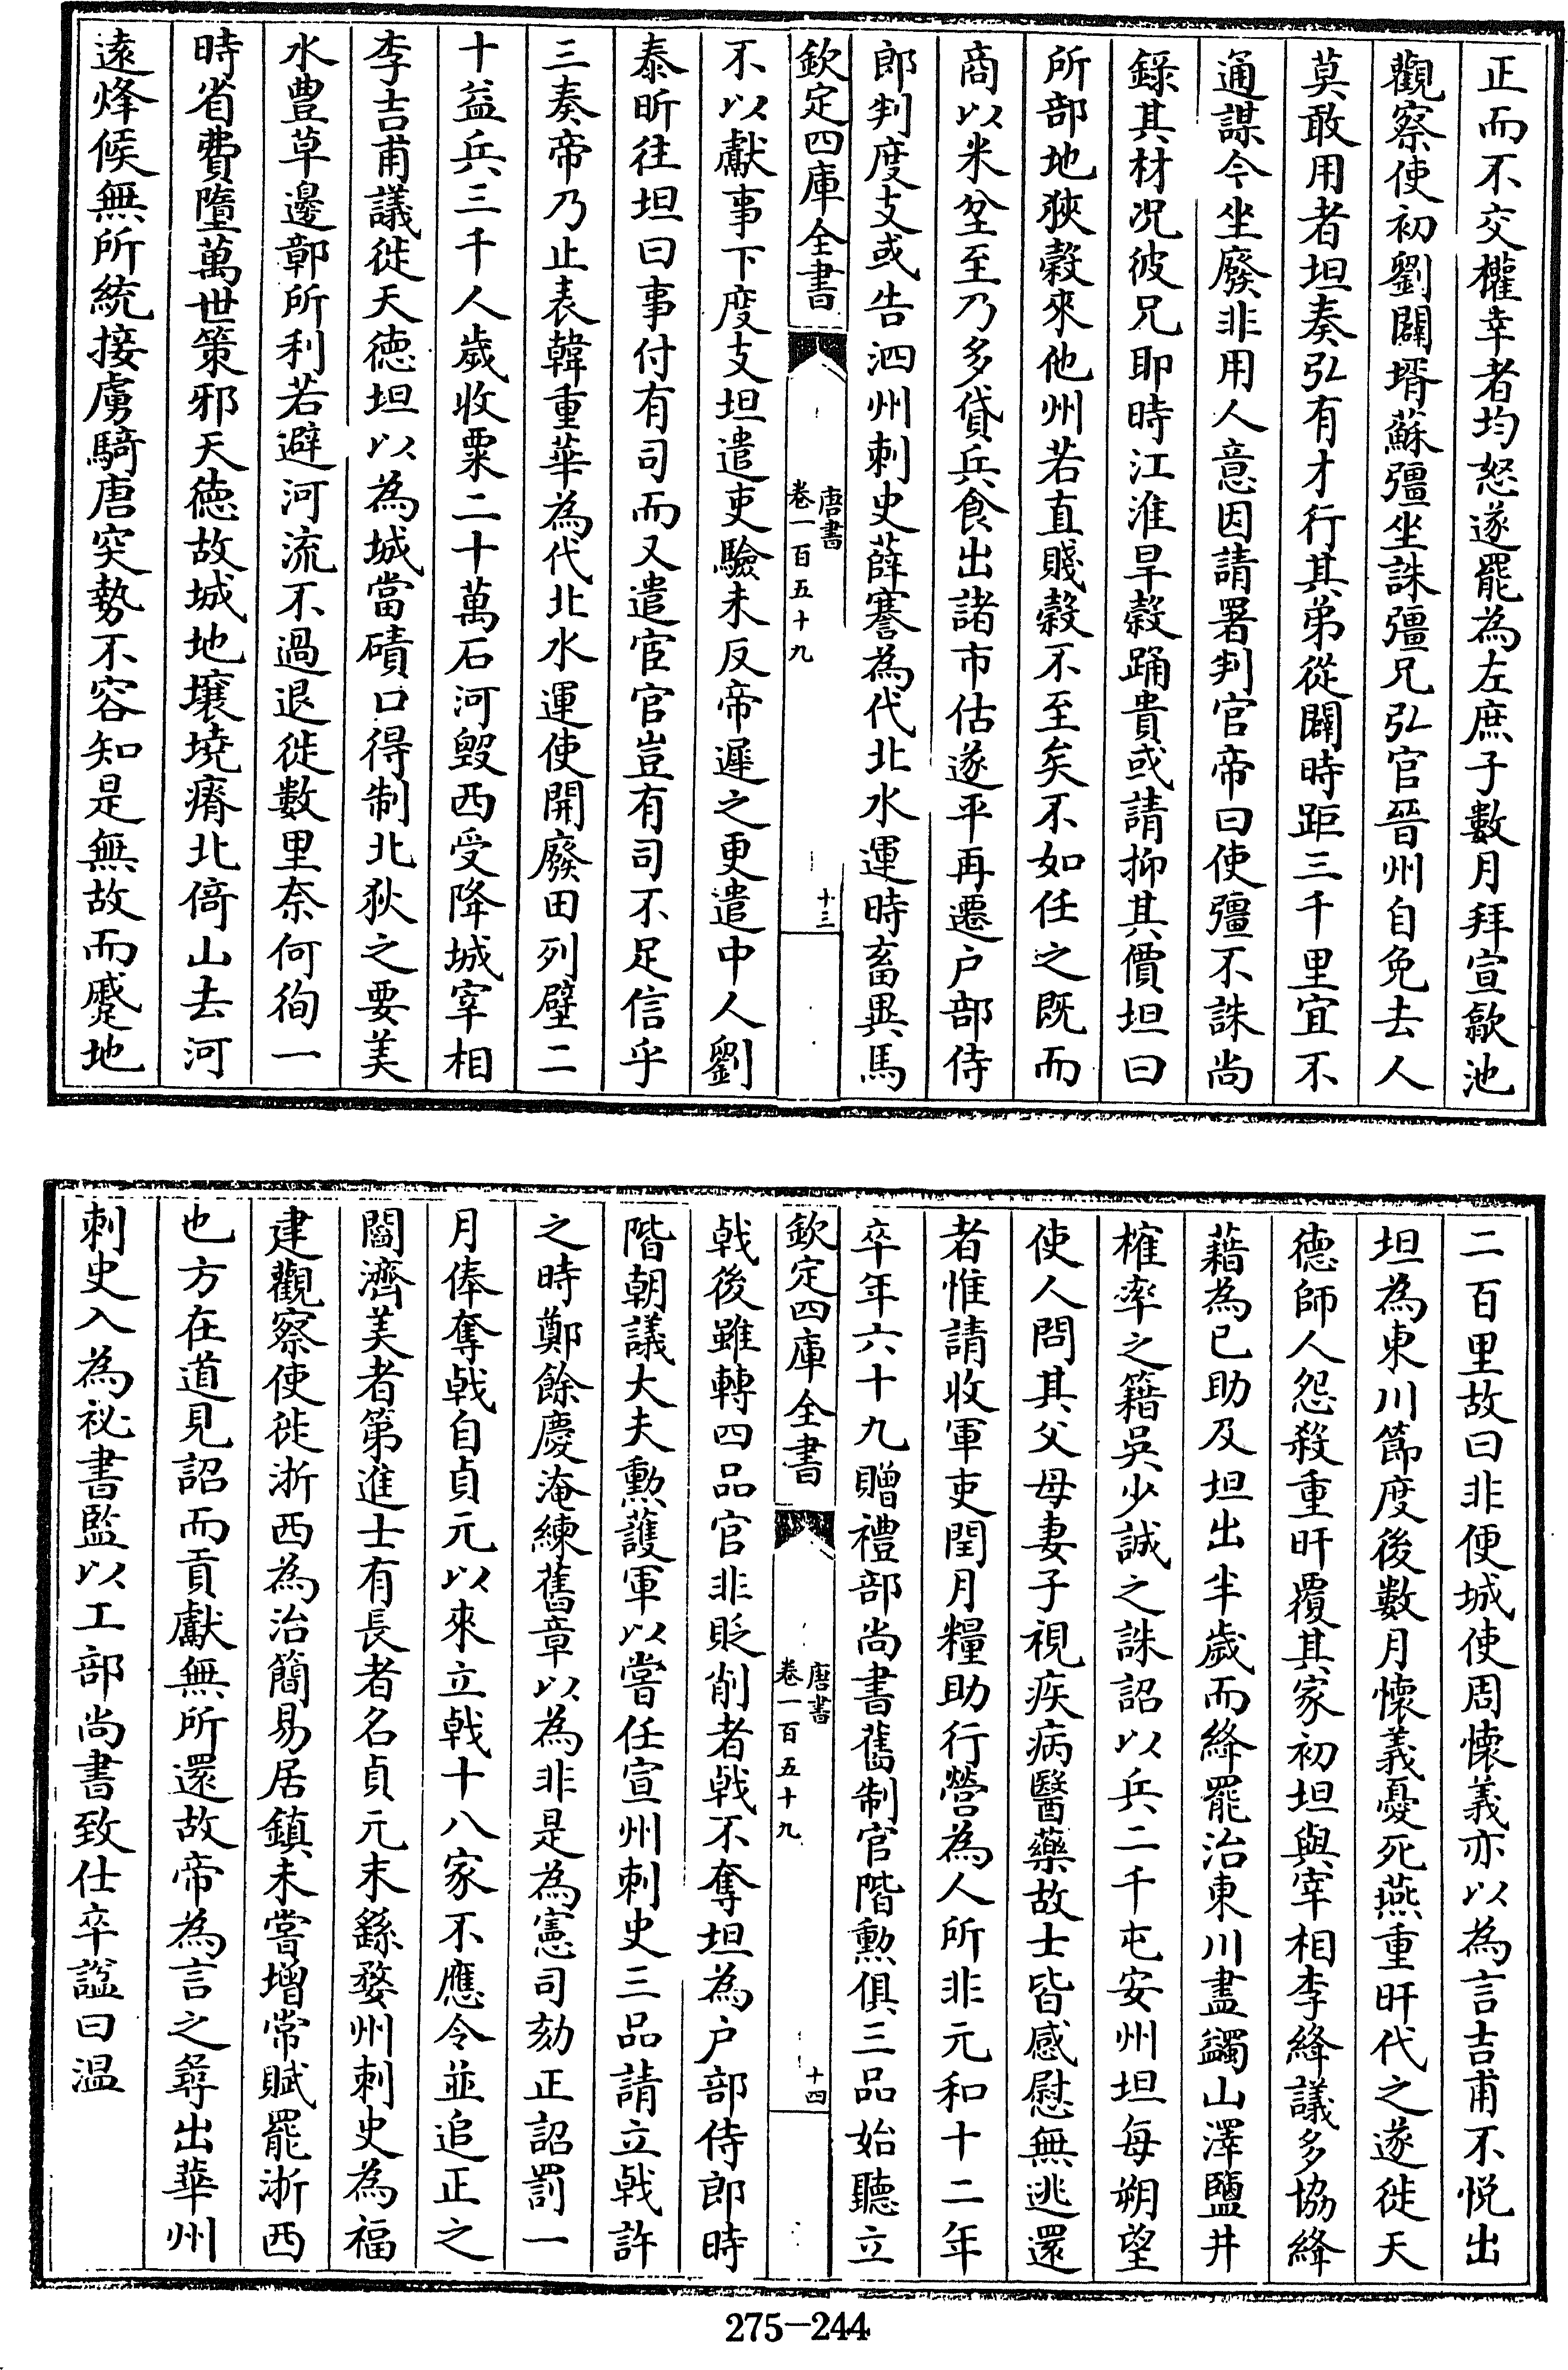 正而不交權幸者均怒遂罷為左庶子數月拜宣歙池
觀察使初劉闢壻蘇彊坐誅彊兄弘官晉州自免去人
莫敢用者坦奏弘有才行其弟從闢時距三千里宜不
通謀今坐廢非用人意因請署判官帝曰使彊不誅尚
録其材况彼兄耶時江淮旱穀踊貴或請抑其價坦曰
所部地狹穀來他州若直賤穀不至矣不如任之既而
商以米坌至乃多貸兵食出諸市估遂平再遷户部侍
郎判度支或告泗州刺史薛謇為代北水運時畜異馬
欽定四庫全書
唐書
卷一百五十九
十三
不以獻事下度支坦遣吏驗未反帝遲之更遣中人劉
泰昕往坦曰事付有司而又遣宦官豈有司不足信乎
三奏帝乃止表韓重華為代北水運使開廢田列壁二
十益兵三千人歲收粟二十萬石河毁西受降城宰相
李吉甫議徙天徳坦以為城當磧口得制北狄之要美
水豊草邊鄣所利若避河流不過退徙數里奈何徇一
時省費墮萬世策邪天徳故城地壤墝瘠北倚山去河
逺烽候無所統接虜騎唐突勢不容知是無故而蹙地
二百里故曰非便城使周懐義亦以為言吉甫不悦出
坦為東川節度後數月懐義憂死燕重旰代之遂徙天
徳師人怨殺重旰覆其家初坦與宰相李絳議多協絳
藉為已助及坦出半歲而絳罷治東川盡蠲山澤鹽井
榷率之籍吳少誠之誅詔以兵二千屯安州坦每朔望
使人問其父母妻子視疾病醫藥故士皆感慰無逃還
者惟請收軍吏閏月糧助行營為人所非元和十二年
卒年六十九贈禮部尚書舊制官階勲俱三品始聽立
欽定四庫全書
唐書
卷一百五十九
十四
戟後雖轉四品官非貶削者戟不奪坦為户部侍郎時
階朝議大夫勲護軍以嘗任宣州刺史三品請立戟許
之時鄭餘慶淹練舊章以為非是為憲司劾正詔罰一
月俸奪戟自貞元以來立戟十八家不應令並追正之
閻濟美者第進士有長者名貞元末繇婺州刺史為福
建觀察使徙浙西為治簡易居鎮未嘗增常賦罷浙西
也方在道見詔而貢獻無所還故帝為言之尋出華州
刺史入為祕書監以工部尚書致仕卒諡曰温
275-244